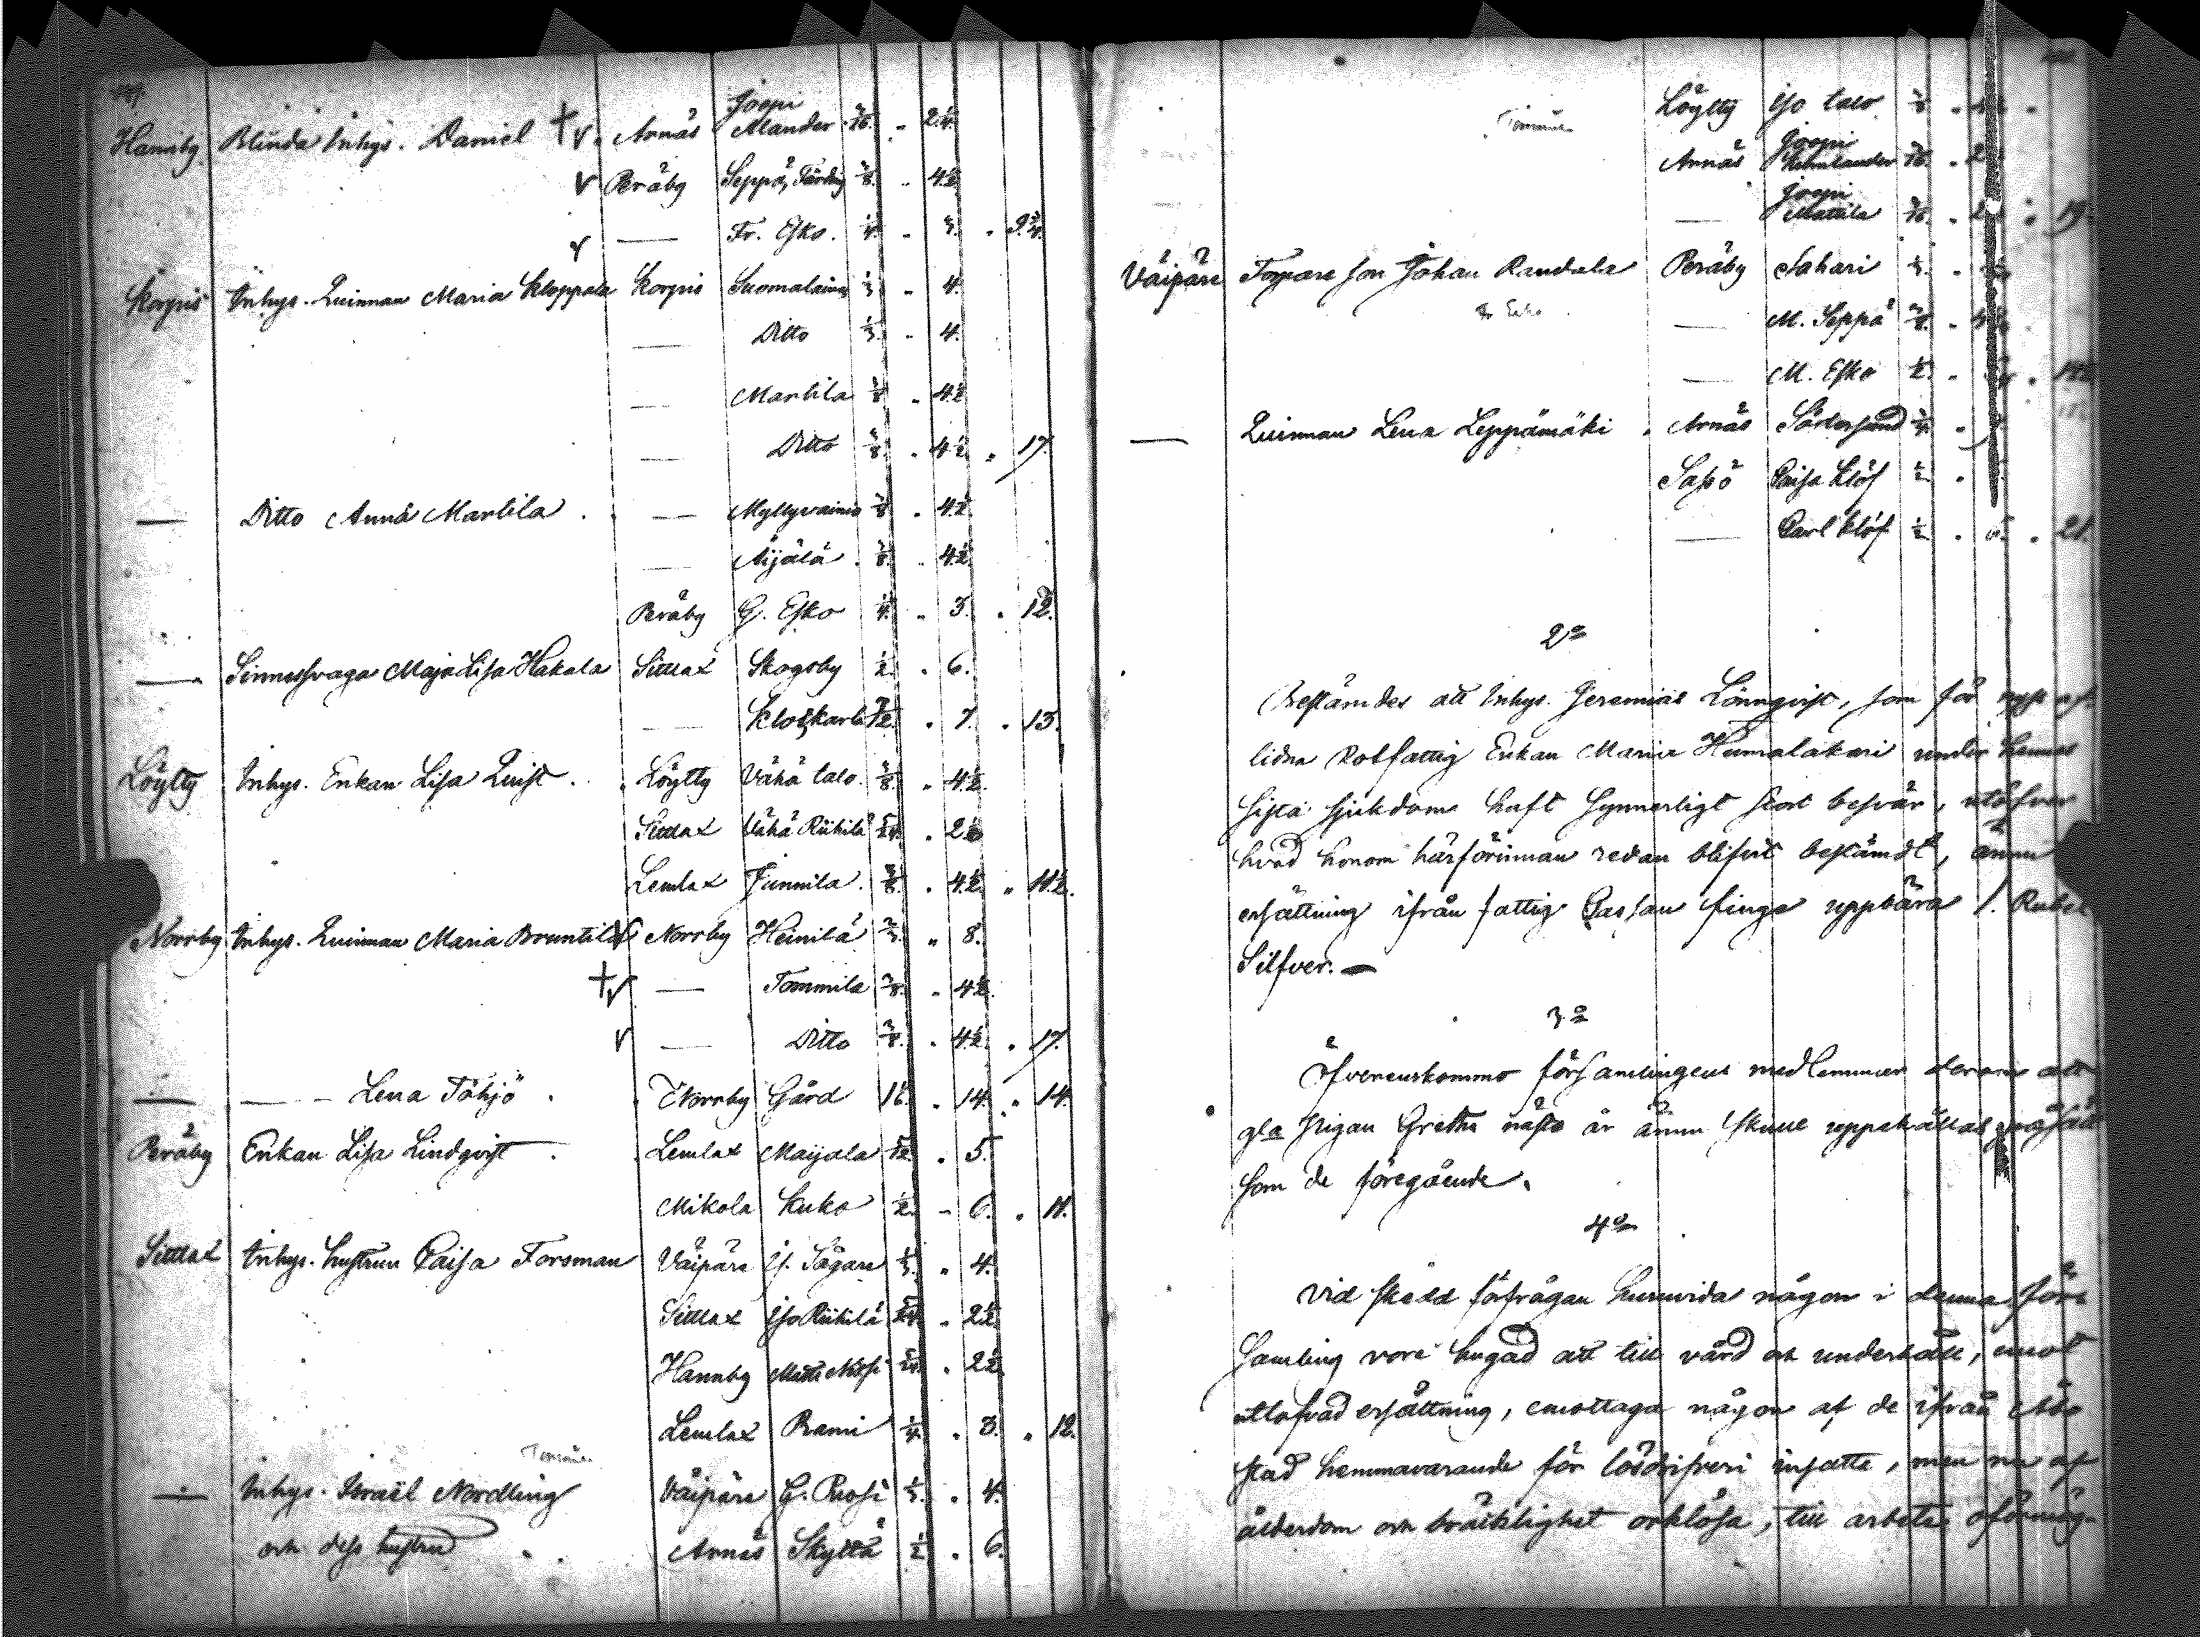 Hannby Blinda Inhys. Daniel + v. Arnäs Joopi Mander 3/16. " 2 1/4.
v Peräby Seppä, Färdig 3/8. " 4 1/2.
v — Fr. Esko. 1/4. " 3. " 9 3/4.
Korpis Inhys. Quinnan Maria Kloppala Korpis Suomalainen 1/3. " 4.
— Ditto 1/3. " 4.
— Martila 3/8. " 4 1/2
— Ditto 3/8. " 4 1/2. " 17.
— Ditto Anna Martila . — Myllyvainio 3/8. " 4 1/2.
— Äijälä . 3/8. " 4 1/2.
Peräby G. Esko 1/4. " 3. " 12.
— Sinnessvaga Maja Lisa Hakala Sittlax Skogsby 1/2. " 6.
— Klockarla 7/12. " 7. " 13.
Löytty Inhys. Enkan Lisa Quist . Löytty Vähä talo. 3/8. " 4 1/2.
Sittlax Vähä Riihilä 5/24. " 2 1/2
Lemlax Junnila. 3/8. " 4 1/2. " 11 1/2.
Norrby Inhys. Quinnan Maria Bruntila v Norrby Heinilä 2/3. " 8.
+ v — Tommila 3/8. " 4 1/2.
v — Ditto 3/8. " 4 1/2. " 17.
— — Lena Töhjö . Norrby Gård " 14. " 14.
Peräby Enkan Lisa Lindqvist . Lemlax Maijala 5/12. " 5.
Mikola Kuko 1/2. " 6. " 11.
Sittlax Inhys. hustrun Caisa Forsman Väipäre Y. Sägare 1/3. " 4.
Sittlax Iso Riihilä 5/24. " 2 1/2.
Hannby Matts Nissi 5/24. " 2 1/2
Lemlax Rami 1/4. " 3. " 12.
— Inhys. Israël Nordling Väipäre G. Ruosi 1/3. " 4.
och dess hustru . . Arnäs Skyttä 1/2. " 6.
Löytty Iso talo 3/8. "
Arnäs Joopi 3/16. " 2
— Joopi Mattila 3/16. " 2 " 19.
Väipäre Torpare son Johan Randala Peräby Sahari 1/3. "
— M. Seppä 3/8. " 4 1/2
— M. Esko 1/2. "
— Quinnan Lena Leppämäki . Arnäs Södersund "
Saxö Caisa Klöf 1/2. "
— Carl Klöf 1/2. " 6. " 21.
2o
Bestämdes att Inhys. Jeremias Lönnqvist, som för nyss af-
lidna Rotfattig Enkan Maria Humalakari under hennes
sista sjukdom haft synnerligt stort besvär, utöfver
hvad honom härförinnan redan blifvit bestämdt, ännu
ersättning ifrån fattig Cassan finge uppbära 1. Rubel
Silfver. —
3o
Öfverenskommo församlingens medlemmar derom att
gla pigan Gretha nästa år ännu skulle uppehållas på så sätt
som de föregående.
4o
Vid skedd förfrågan huruvida någon i denna för-
samling vore hugad att till vård och underhåll, emot
utlofvad ersättning, emottaga någon af de ifrån Åbo
stad hemmavarande för lösdrifveri insatte, men nu af
ålderdom och bräcklighet orklösa, till arbete oförmög-